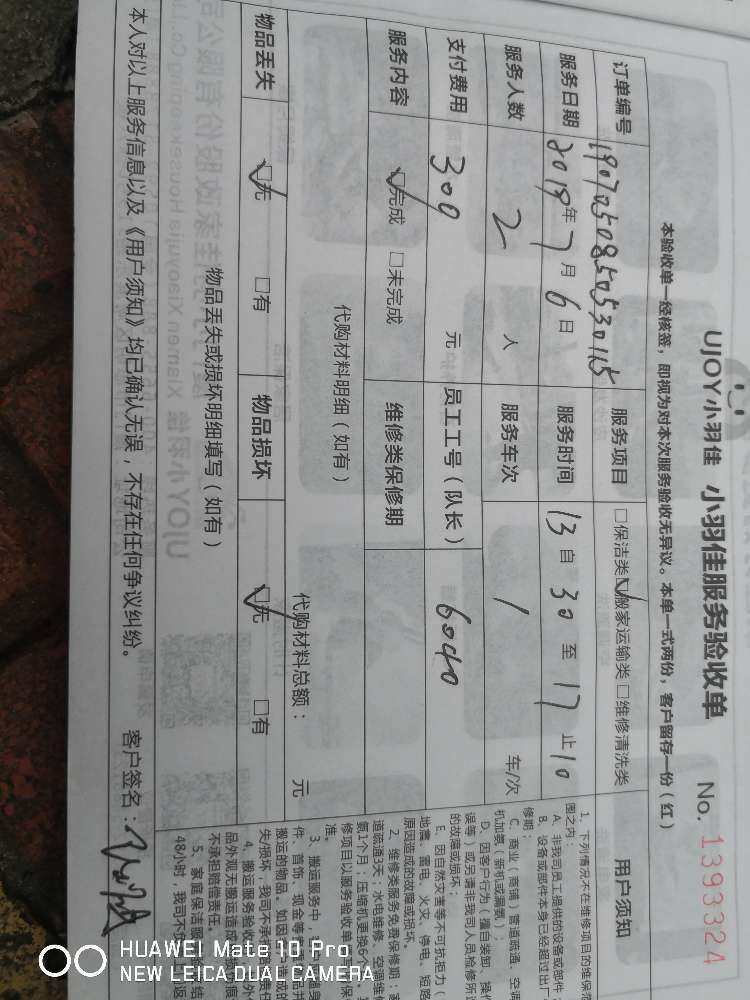 UJOY小羽佳 小羽佳服务验收单 No. 1393324
本验收单一经核签，即视为对本次服务验收无异议。本单一式两份，客户留存一份（红）
订单编号 1907050850530115 服务项目 □保洁类☑搬家运输类□维修清洗类
服务日期 2019年7月6日 服务时间 13自30至17止10
服务人数 2 人 服务车次 1 车/次
支付费用 300 元 员工工号（队长） 6040
服务内容 ☑完成 □未完成 维修类保修期
代购材料明细（如有）
代购材料总额： 元
物品丢失 ☑无 □有 物品损坏 ☑无 □有
物品丢失或损坏明细填写（如有）
本人对以上服务信息以及《用户须知》均已确认无误，不存在任何争议纠纷。 客户签名：
用户须知
1、下列情况不在维修项目的维保范
围之内：
A、非我司员工提供的设备或部件
B、设备或部件本身已经超过出厂
修期；
C、商业（商铺）管道疏通、空调
机加氨（新机或漏氨）；
D、因客户行为（擅自装卸、操作
误等）或另请非我司人员检修所造
的故障或损坏；
E、因自然灾害等不可抗拒力（
地震、雷电、火灾、停电、短路
原因造成的故障或损坏。
2、维修类服务免费保修期：
道疏通3天；水电维修、空调维修
氨1个月；压缩机更换6个
修项目以服务验收单
准。
3、搬运服务中，
件、首饰、现金等
搬运的物品，如因
失/损坏；我司不承
4、搬运服务验收
品外观无搬运造
不承担赔偿责任。
5、家庭保洁服
48小时，我司不
HUAWEI Mate 10 Pro
NEW LEICA DUAL CAMERA